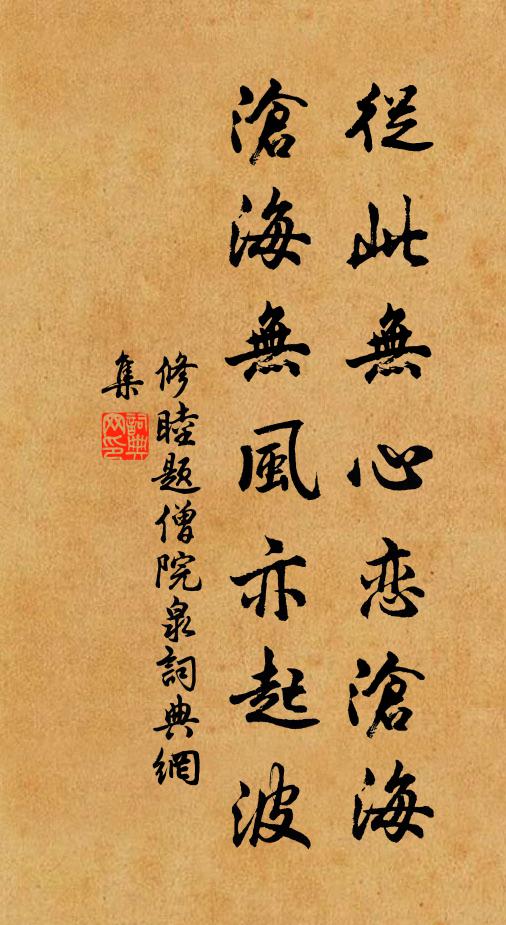 從此無心恋滄海
滄海無風亦起波
修睦題僧院泉詞典網
集
詞典網印